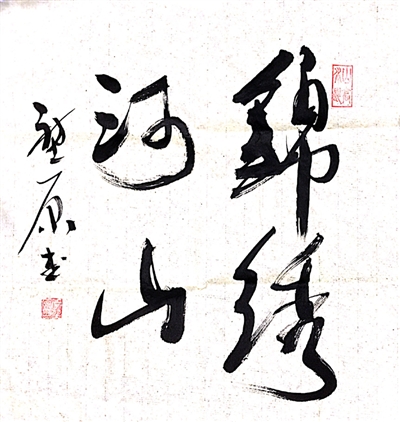 錦綉
河山
原书